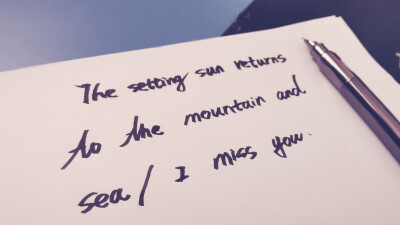 The setting sun returns
to the mountain and
sea/ I miss you.